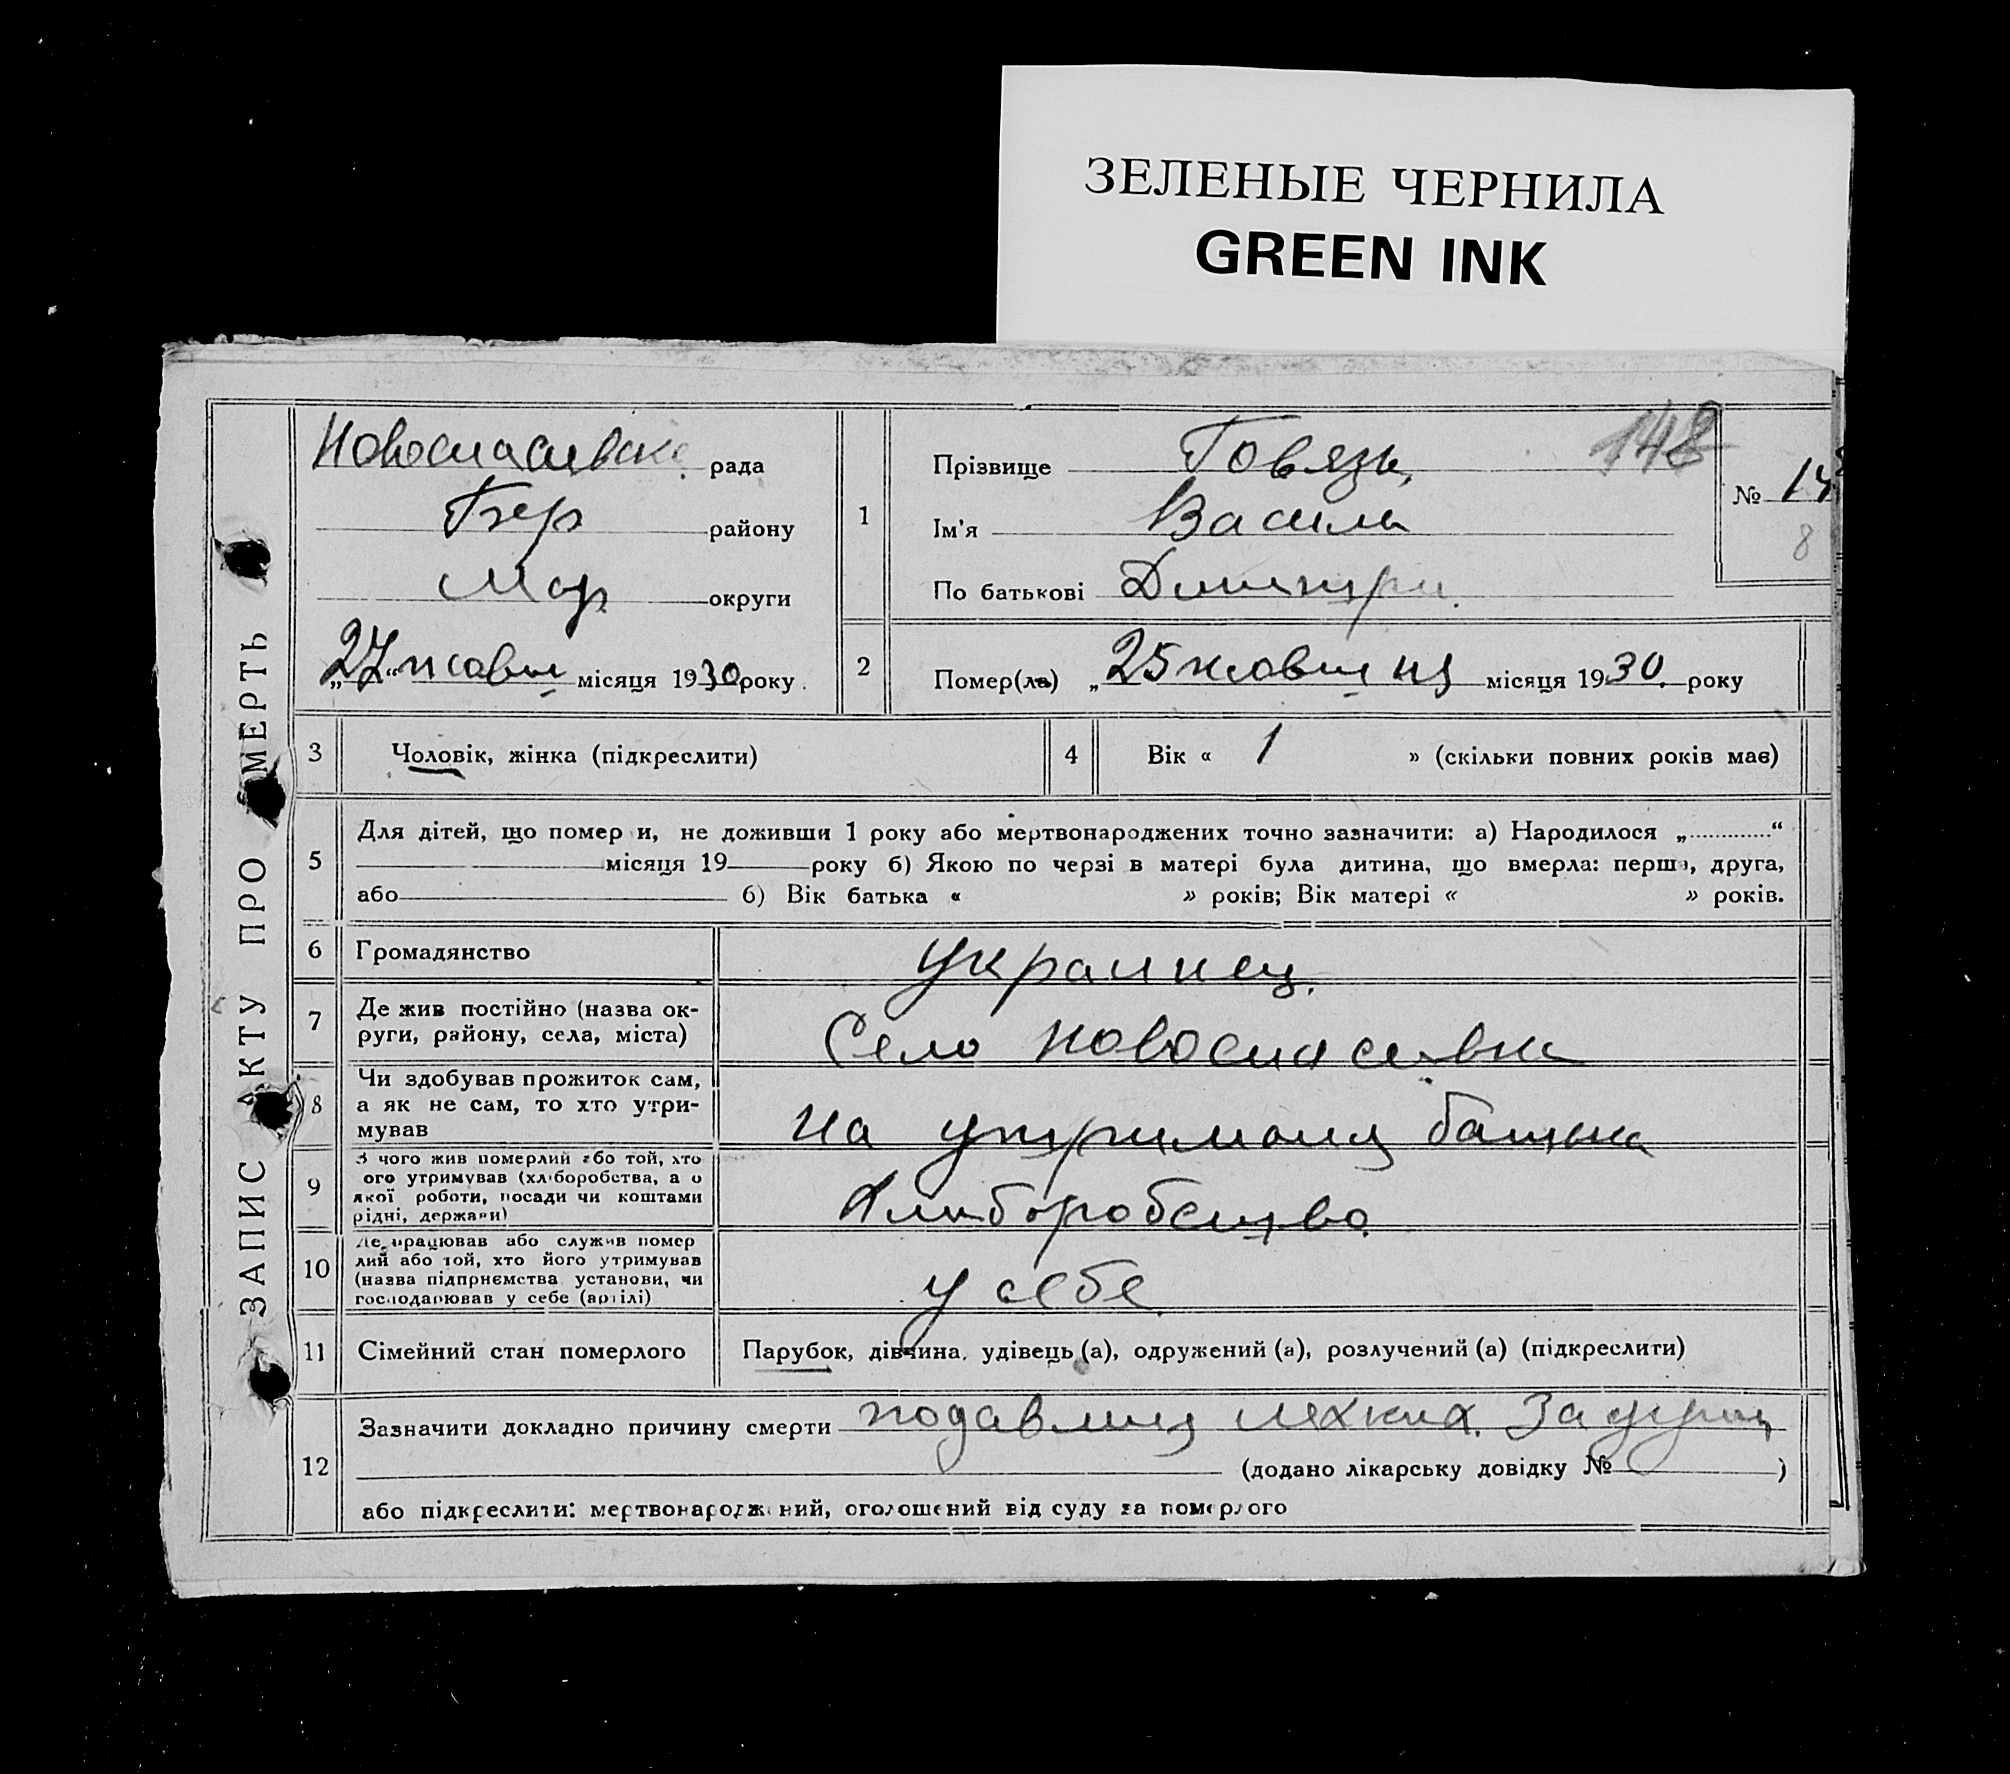 ЗЕЛЕНЫЕ ЧЕРНИЛА
GREEN INK
ЗАПИС АКТУ ПРО СМЕРТЬ
Новоспасивська рада
Бер району
Мар округи
„27“ жовтн місяця 1930 року
1
Прізвище Говязь
148
Ім'я Василь
По батькові Дмитри
№ 14
8
2
Помер(ла) „25 жовтня місяця 1930 року
3 Чоловік, жінка (підкреслити)
4 Вік « 1 » (скільки повних років має)
5
Для дітей, що помер и, не доживши 1 року або мертвонароджених точно зазначити: а) Народилося „ “
місяця 19 року б) Якою по черзі в матері була дитина, що вмерла: перша, друга,
або б) Вік батька « » років; Вік матері « » років.
6 Громадянство украинец.
7 Де жив постійно (назва ок-
руги, району, села, міста) Село новоспасивка
8 Чи здобував прожиток сам,
а як не сам, то хто утри-
мував на утриманя батька
9 З чого жив померлий або той, хто
ого утримував (хліборобства, а о
якої роботи, посади чи коштами
рідні, держави) Хлиборобство
10 Де працював або служив помер
лий або той, хто його утримував
(назва підприємства установи, чи
господарював у себе (артілі) у себе
11 Сімейний стан померлого Парубок, дівчина, удівець (а), одружений (а), розлучений (а) (підкреслити)
12
Зазначити докладно причину смерти подавлиня
(додано лікарську довідку № )
або підкреслити: мертвонароджений, оголошений від суду за померлого